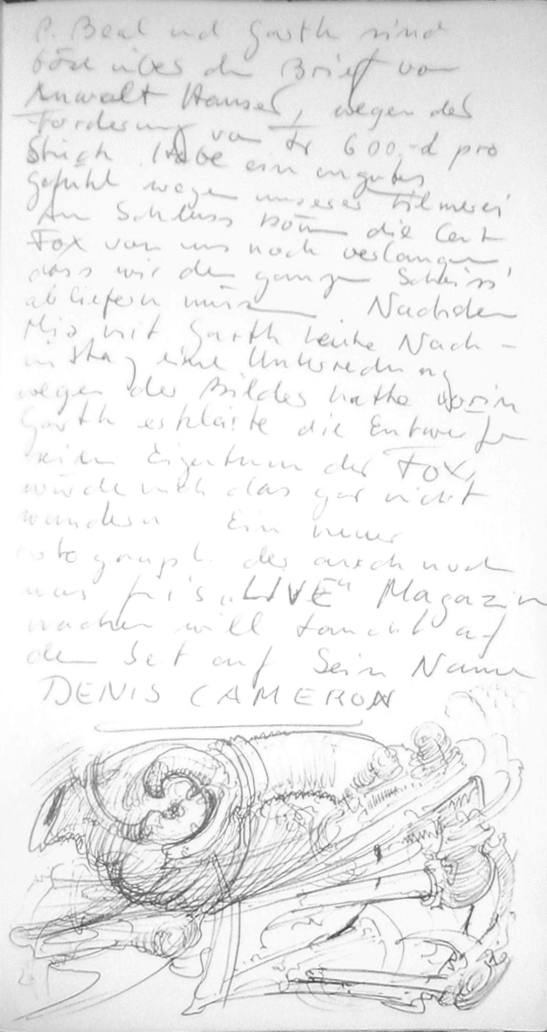 P. Beal und Garth sind
böse über den Brief von
Anwalt Hauser, wegen der
Forderung von Fr 600,-d pro
Strich. Habe ein ungutes
Gefühl wegen unserer Filmerei
Am Schluss könn die Cent
Fox von uns noch verlangen
dass wir den ganzen Scheiss
abliefern müssen. Nachdem
Mia mit Garth heute Nach-
mittag eine Unterredung
wegen der Bilder hatte worin
Garth erklärte die Entwürfe
seien Eigentum der FOX,
würde mich das gar nicht
wundern. Ein neuer
Fotograph. der auch noch
was für's "LIVE" Magazin
machen will taucht auf
dem Set auf. Sein Name
DENIS CAMERON